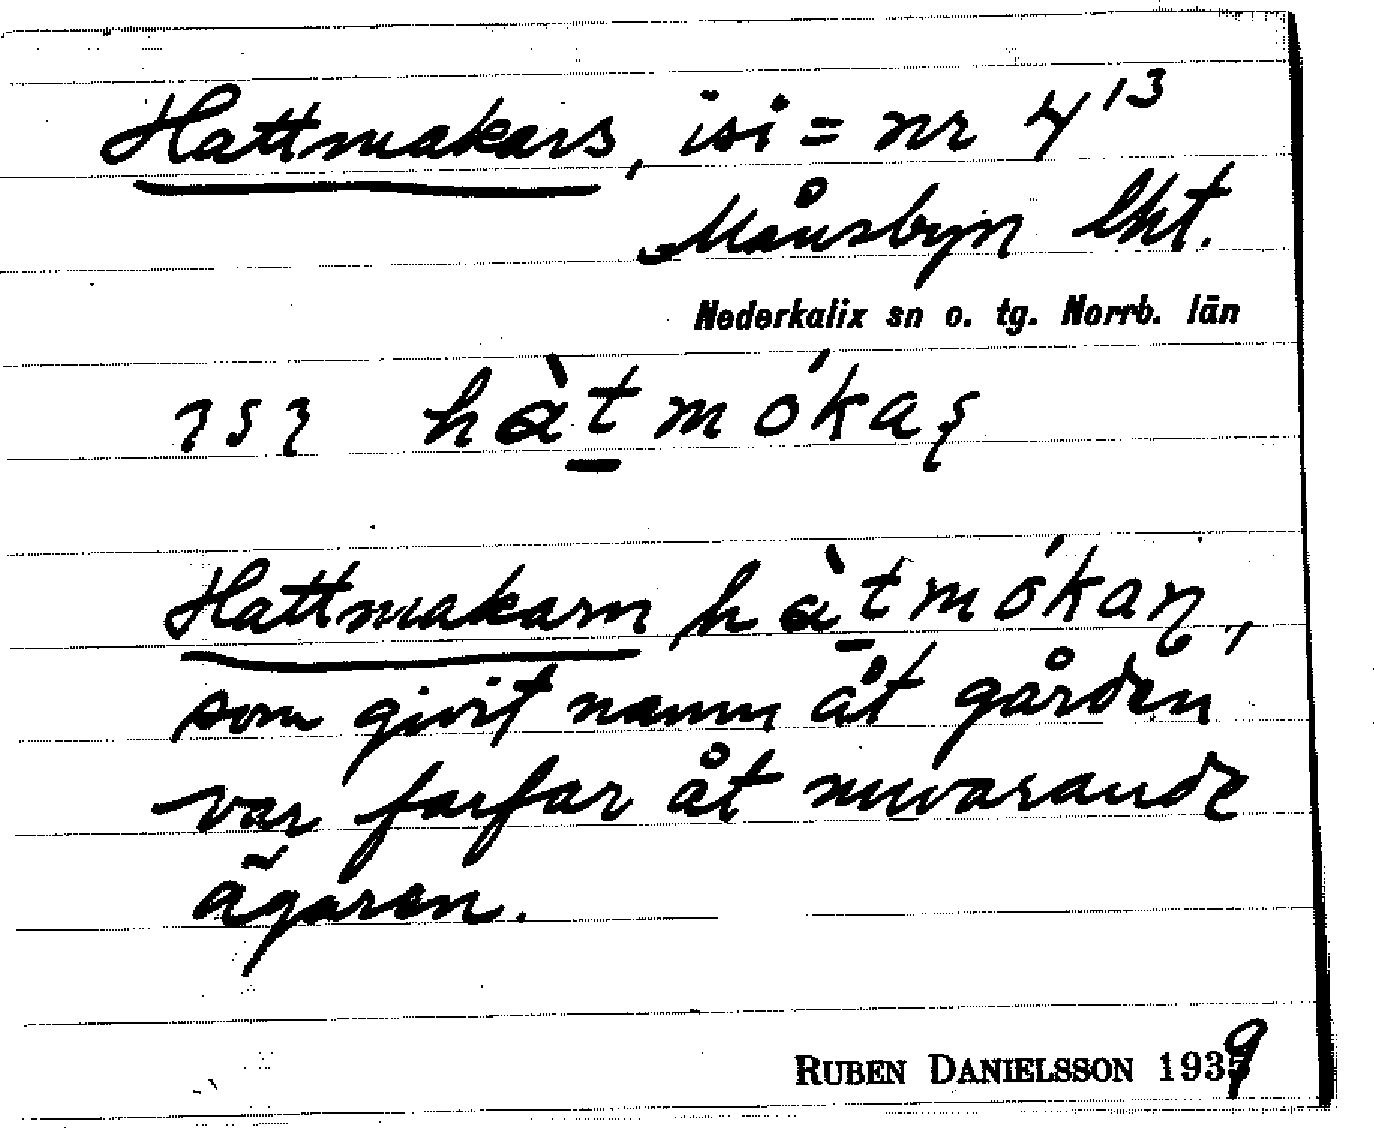 Hattmakars, isi = nr 4¹³
Månsbyn lkt.
Nederkalix sn o. tg. Norrb. län
hàt̲mókaş
Hattmakarn hàt̲mókaņ,
som givit namn åt gården
var farfar åt nuvarande
ägaren.
RUBEN DANIELSSON 1939